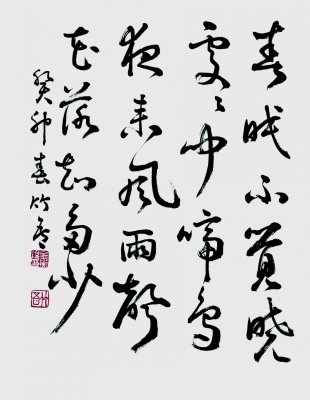 春眠不覺曉
處〻聞啼鳥
夜来風雨聲
花落知多少
癸卯春竹